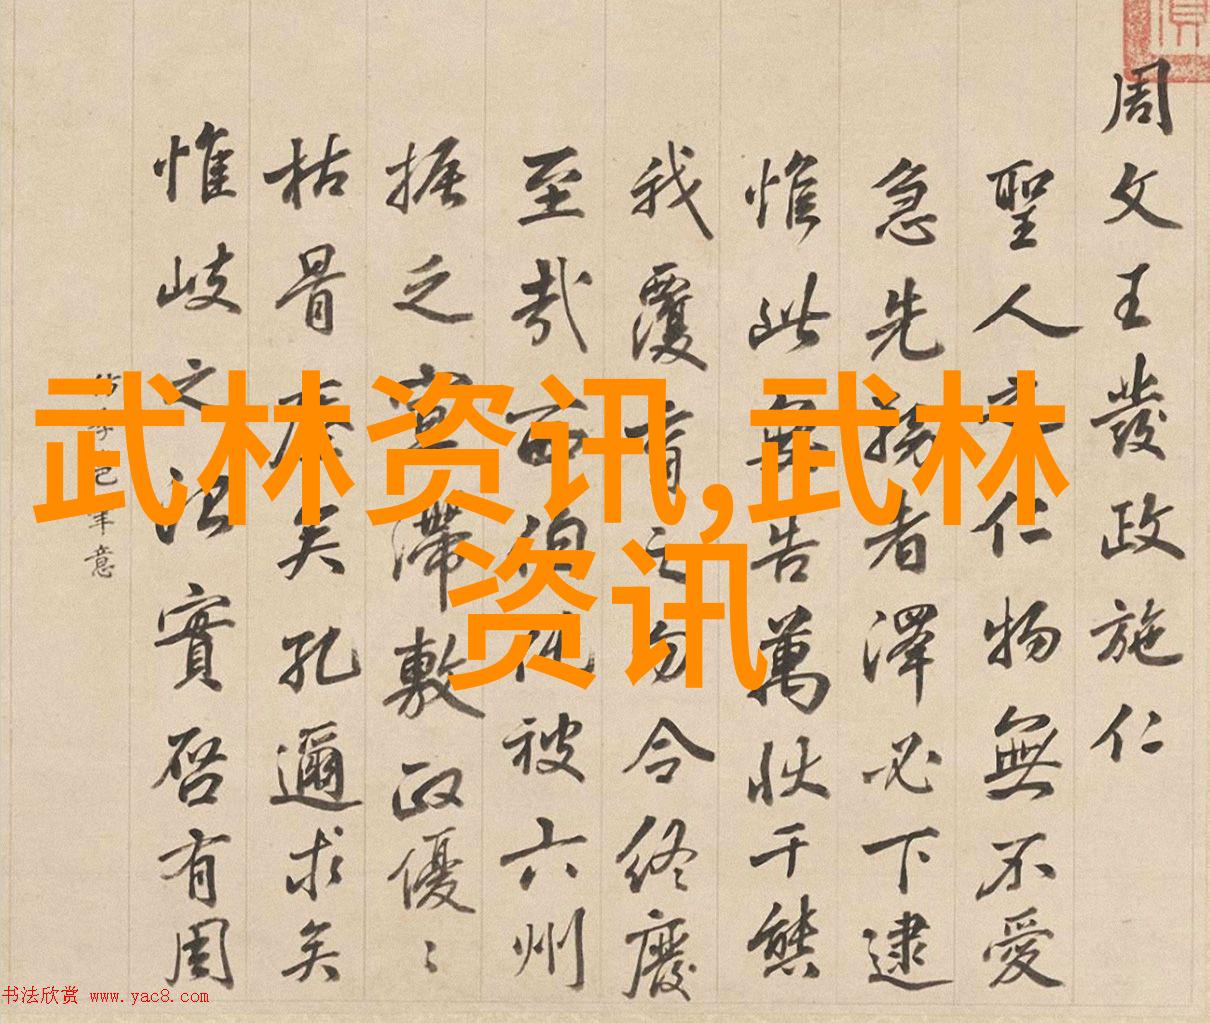 周文王發政施仁
聖人之仁物無不愛
急先務者澤必下逮
惟此無告萬狀千態
我覆育之勿令終廢
至哉西伯化被六州
振之宣滯敷政優〻
枯骨矣孔邇求矣
惟岐之治實啓有周
筆意
武林资讯,武林
资讯
书法欣赏 www.yac8.com